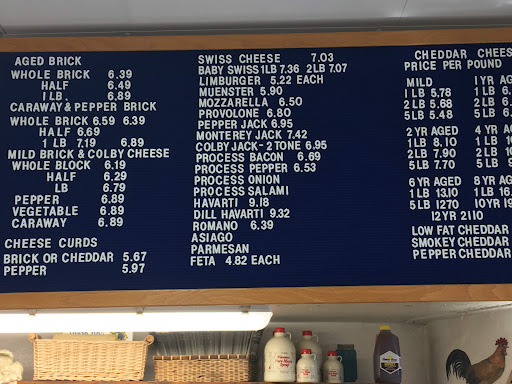 AGED BRICK
WHOLE BRICK 6.39
HALF 6.49
1 LB. 6.89
CARAWAY & PEPPER BRICK
WHOLE BRICK 6.59 6.39
HALF 6.69
1 LB 7.19 6.89
MILD BRICK & COLBY CHEESE
WHOLE BLOCK 6.19
HALF 6.29
LB 6.79
PEPPER 6.89
VEGETABLE 6.89
CARAWAY 6.89
CHEESE CURDS
BRICK OR CHEDDAR 5.67
PEPPER 5.97
SWISS CHEESE 7.03
BABY SWISS 1LB 7.36 2LB 7.07
LIMBURGER 5.22 EACH
MUENSTER 5.90
MOZZARELLA 6.50
PROVOLONE 6.80
PEPPER JACK 6.95
MONTEREY JACK 7.42
COLBY JACK-2 TONE 6.95
PROCESS BACON 6.69
PROCESS PEPPER 6.53
PROCESS ONION
PROCESS SALAMI
HAVARTI 9.18
DILL HAVARTI 9.32
ROMANO 6.39
ASIAGO
PARMESAN
FETA 4.82 EACH
CHEDDAR CHEES
PRICE PER POUND
MILD 1 YR AG
1 LB 5.78 1 LB 6.
2 LB 5.68 2 LB 6.
5 LB 5.48 5 LB 6.
2 YR AGED 4 YR A
1 LB 8.10 1 LB 10
2 LB 7.90 2 LB 10
5 LB 7.70 5 LB 9.
6 YR AGED 8 YR AG
1 LB 13.10 1 LB 16.
5 LB 1270 10 YR 19
12 YR 21 10
LOW FAT CHEDDAR
SMOKEY CHEDDAR
PEPPER CHEDDAR